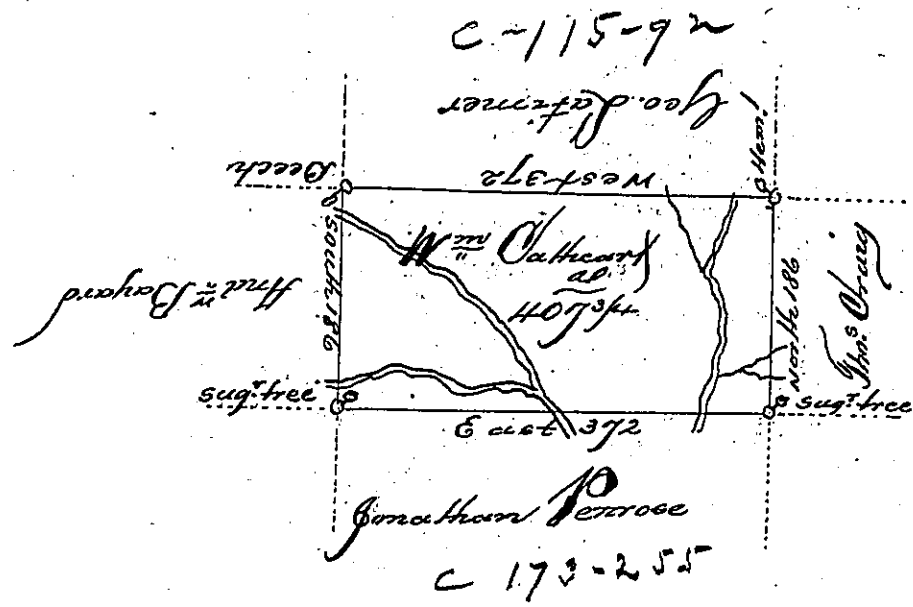 C-115-92
Geo. Latimer
Beech
West 372
Hem.
South 186
Wm Cathcart
407
And.w Bayard
North 186
Thos Craig
sugr. tree
East 372
sugr. tree
Jonathan Penrose
C 173-255